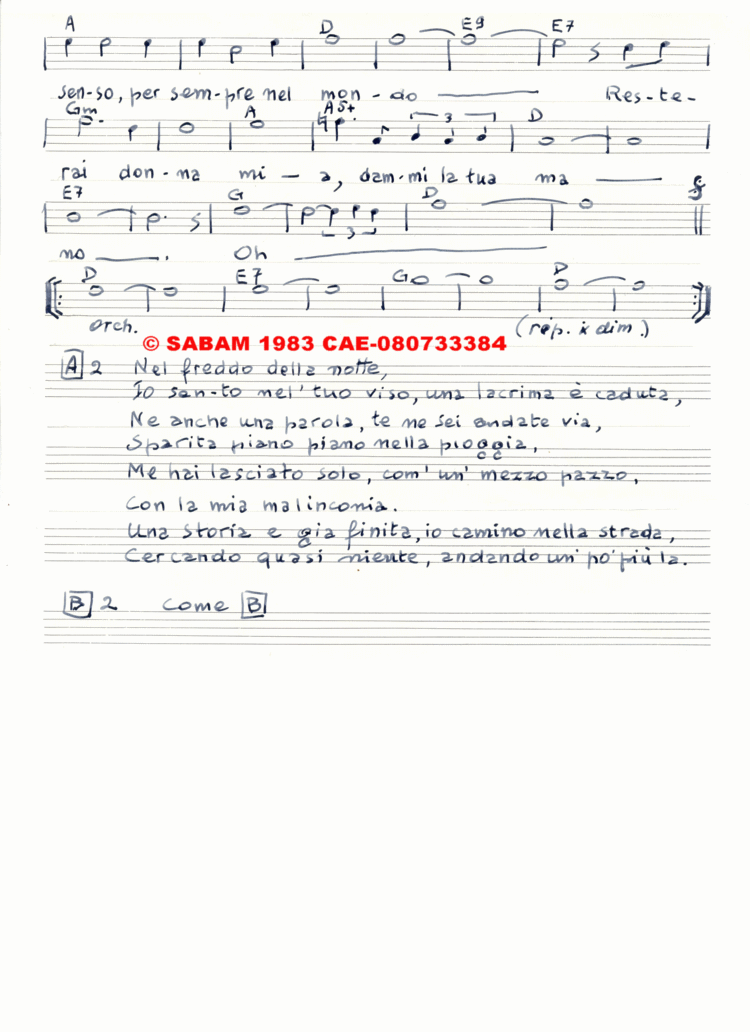 A D E9 E7
sen-so, per sem-pre nel mon-do Res-te-
Gm A A5+ 3 D
rai don-na mi-a, dam-mi la tua ma
E7 G 3 D
no. Oh
D E7 G D
Orch. (rép. x dim.)
© SABAM 1983 CAE-080733384
A 2 Nel freddo della notte,
Io san-to nel'tuo viso, una lacrima è caduta,
Ne anche una parola, te ne sei andate via,
Sparita piano piano nella pioggia,
Me hai lasciato solo, com' un' mezzo pazzo,
Con la mia malinconia.
Una storia e gia finita, io camino nella strada,
Cercando quasi niente, andando un' po' più la.
B 2 come B